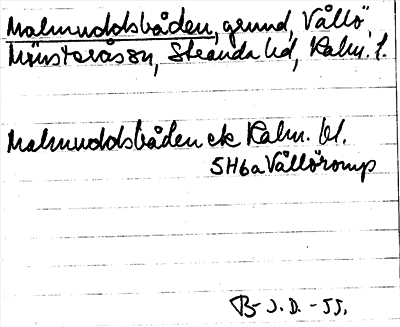 Malmuddsbåden, grund, Vållö,
Mönsterås sn, Stranda hd, Kalm. l.
Malmuddsbåden ek Kalm. bl.
5H6a Vållöromp
B-J.D. -55.